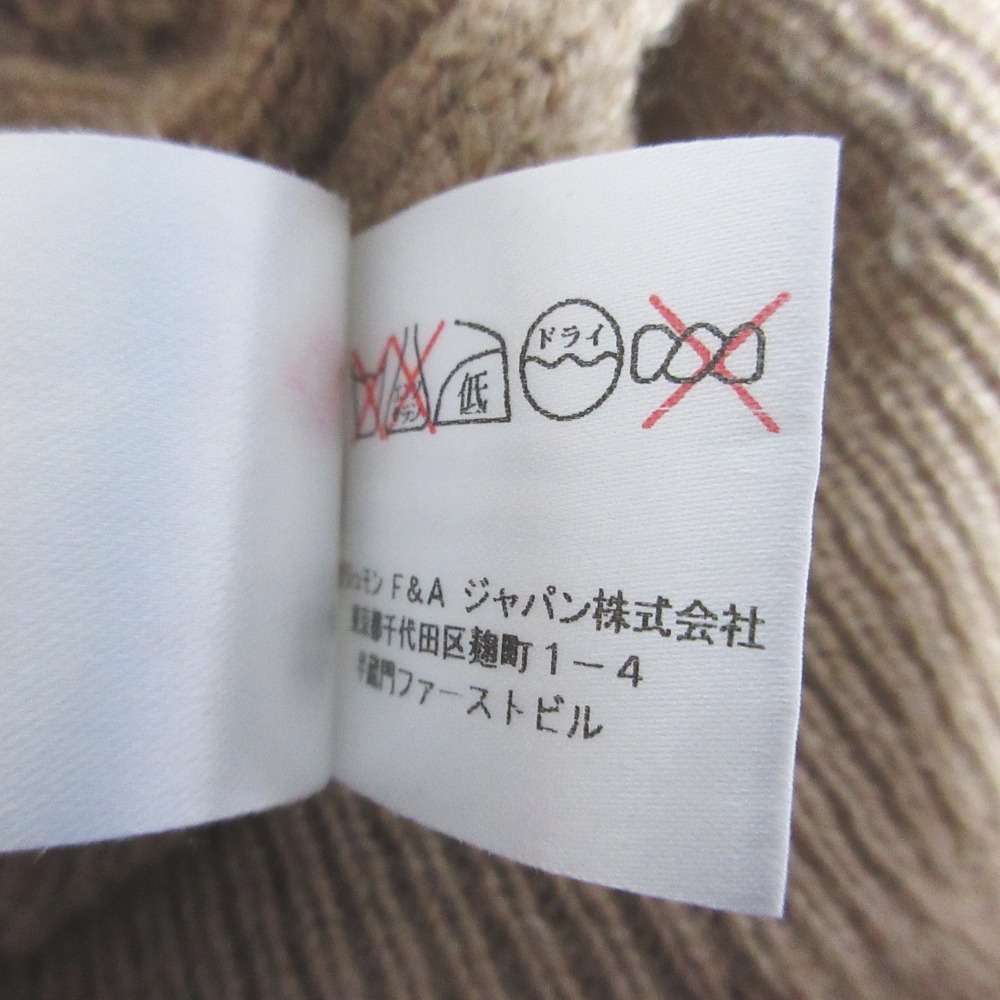 低 ドライ
モン F&A ジャパン株式会社
東京都千代田区麹町1-4
半蔵門ファーストビル